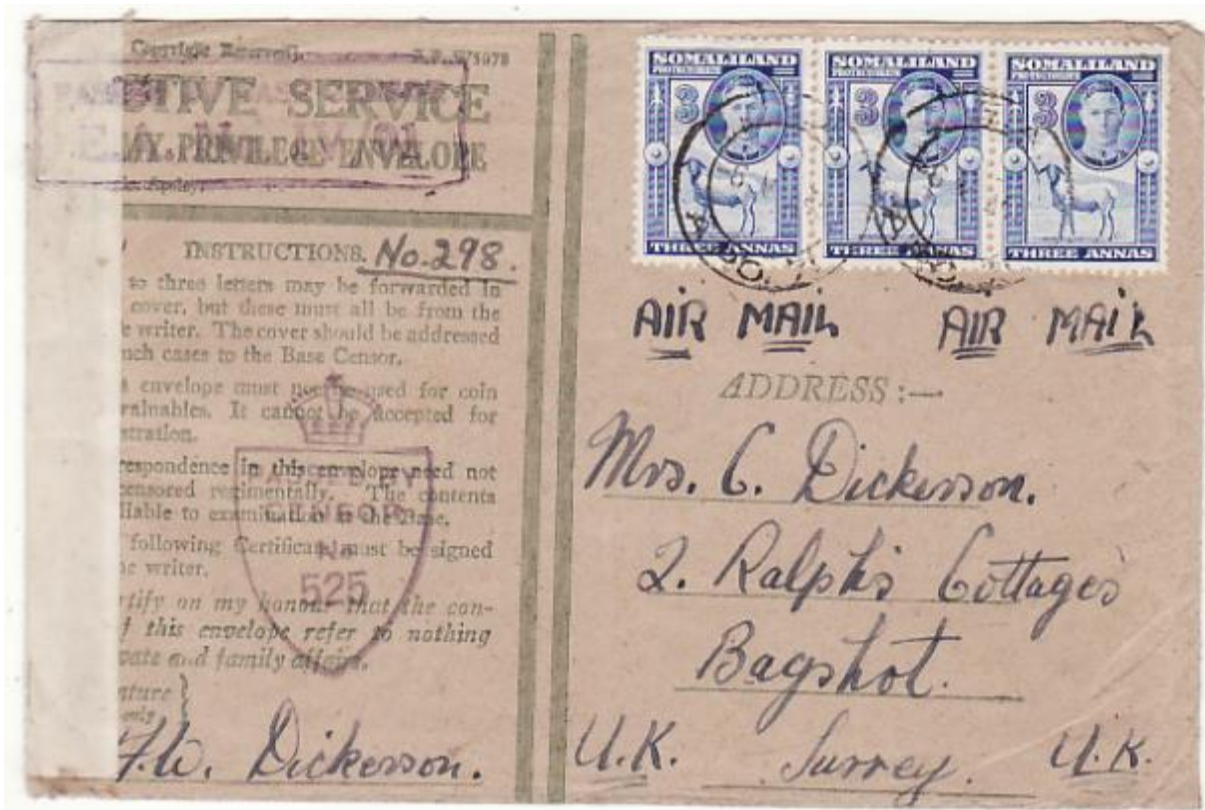 Copyright Reserved.
ACTIVE SERVICE
ARMY PRIVILEGE ENVELOPE
INSTRUCTIONS. No. 298.
to three letters may be forwarded in
cover, but these must all be from the
writer. The cover should be addressed
such cases to the Base Censor.
envelope must not be used for coin
valuables. It cannot be accepted for
respondence in this envelope need not
censored regimentally. The contents
liable to examination at the Base.
following Certificate must be signed
writer.
tify on my honour that the con-
this envelope refer to nothing
vate and family affairs.
ature
only
F.W. Dickerson.
PASSED BY
CENSOR
No
525
SOMALILAND
PROTECTORATE
3
THREE ANNAS
SOMALILAND
PROTECTORATE
3
THREE ANNAS
SOMALILAND
PROTECTORATE
3
THREE ANNAS
AIR MAIL AIR MAIL
ADDRESS :—
Mrs. C. Dickerson.
2. Ralph's Cottages
Bagshot.
U.K. Surrey. U.K.